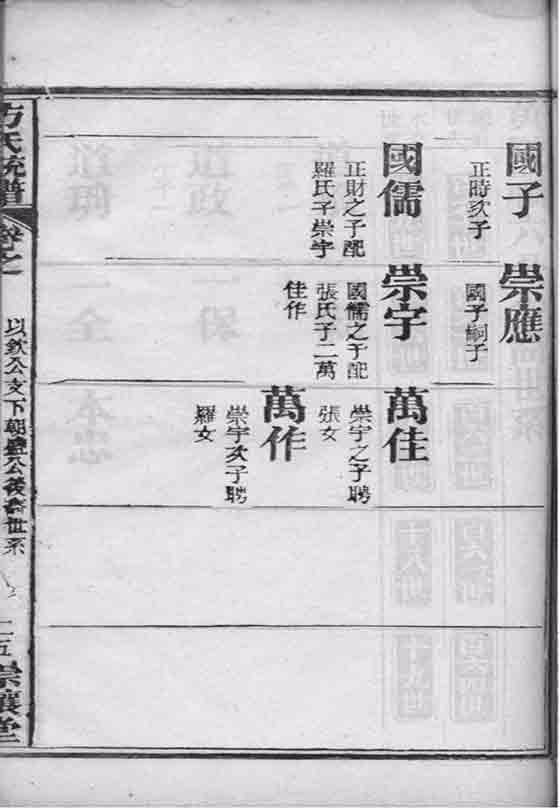 國子
正時次子
崇應
國子嗣子
國儒
正財之子配
羅氏子崇宇
崇宇
國儒之子配
張氏子二萬
佳作
萬佳
崇宇之子聘
張女
萬作
崇宇次子聘
羅女
方氏統譜
卷之一
以欽公支下朝
公後裔世系
二五
崇讓堂